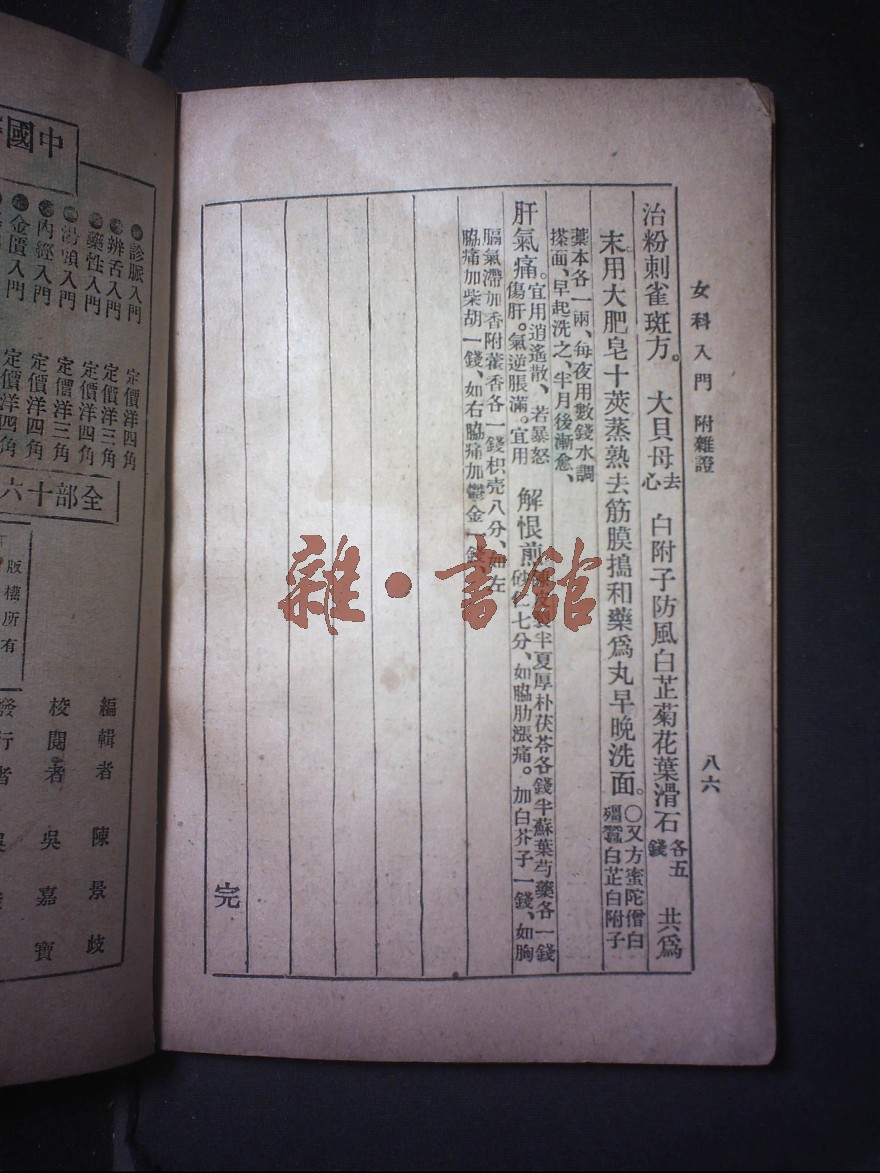 女科入門 附雜證
八六
治粉刺雀斑方。 大貝母去心 白附子防風白芷菊花葉滑石各五錢 共爲
末。用大肥皂十莢蒸熟去筋膜搗和藥爲丸早晚洗面。○又方蜜陀僧白
殭蠶白芷白附子
藁本各一兩、每夜用數錢水調
搽面、早起洗之、半月後漸愈、
肝氣痛。宜用逍遙散、若暴怒
傷肝。氣逆脹滿。宜用
解恨煎
半夏厚朴茯苓各錢半蘇葉芍藥各一錢
砂仁七分、如脇肋漲痛。加白芥子一錢、如胸
膈氣滯加香附藿香各一錢枳壳八分、如左
脇痛加柴胡一錢、如右脇痛加鬱金一錢、
完
雜·書館
中國
診脈入門 定價洋四角
辨舌入門 定價洋三角
藥性入門 定價洋四角
湯頭入門 定價洋三角
內經入門 定價洋四角
金匱入門 定價洋四角
全部十六
版權所有
編輯者 陳景歧
校閱者 吳嘉寶
發行者